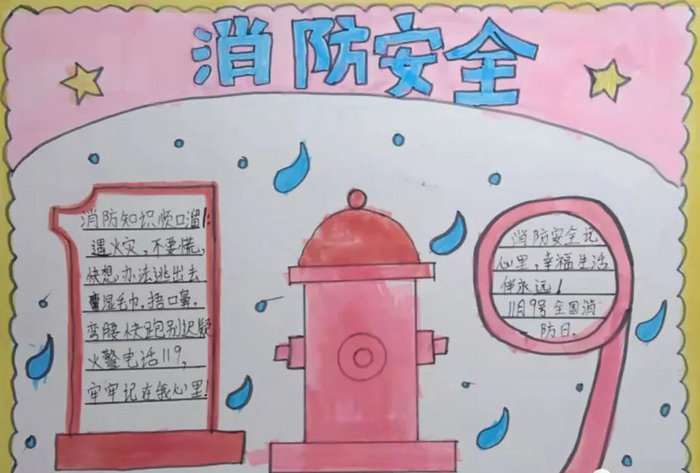 消防安全
消防知识顺口溜!
遇火灾,不要慌,
快想办法逃出去
蘸湿毛巾,捂口鼻。
弯腰快跑别迟疑
火警电话119,
牢牢记在我心里!
消防安全记
心里,幸福生活
伴永远!
11月9号全国消
防日。